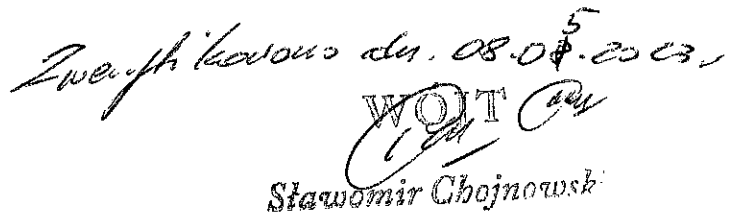 Zweryfikowano dn. 08.05.2023r
WÓJT
Sławomir Chojnowski